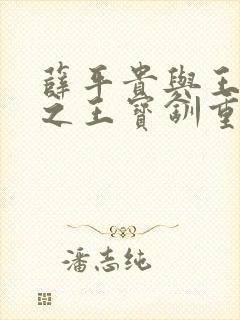 薛平貴與王
之王寶釧重
潘志純